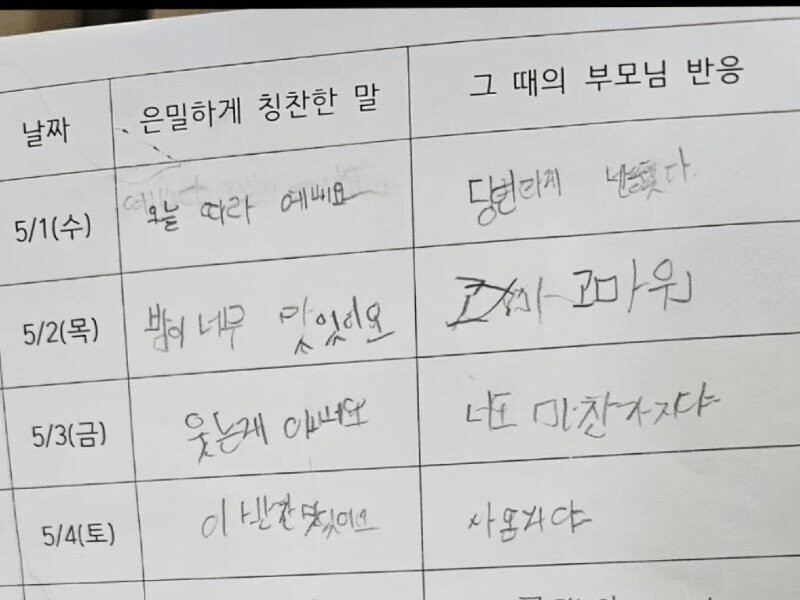 날짜 은밀하게 칭찬한 말 그 때의 부모님 반응
5/1(수) 오늘 따라 예뻐요 당번라제
5/2(목) 밤이 너무 맛있어요 고마워
5/3(금) 웃는게 이뻐요 너도 마찬가지야
5/4(토) 이 반찬 맛있어요 사온거야